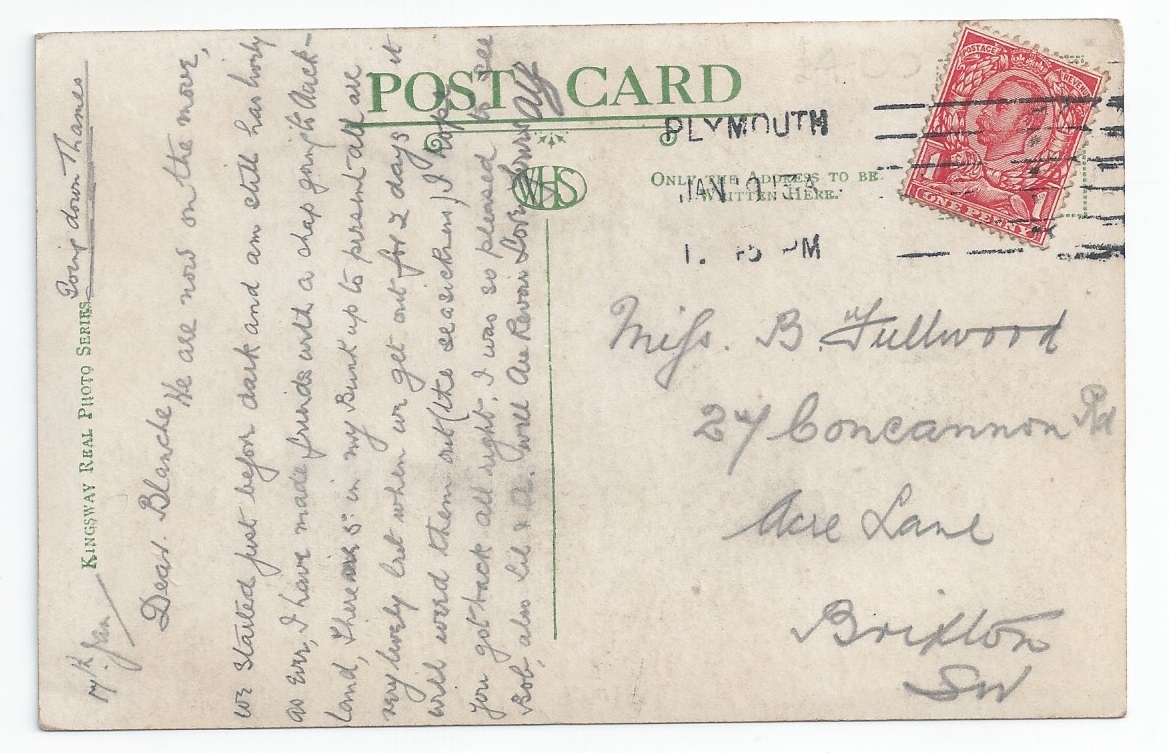 POST CARD
WHS
ONLY THE ADDRESS TO BE
WRITTEN HERE.
PLYMOUTH
JAN
PM
POSTAGE
REVENUE
1
1
ONE PENNY
KINGSWAY REAL PHOTO SERIES
Going down Thames
17th Jan
Dear Blanche
We are now on the move,
we started just before dark and am still has lively
as ever, I have made friends with a chap going to Auck-
land, There are 5 in my Bunk up to present all are
very lively but when we get out for 2 days it
will weed them out (the seasickness) I hope
you got back all right, I was so pleased to see
Bob, also Lil & A. well Au Revoir Love yours Alf
Miss. B. Fullwood
27 Concannon Rd
Acre Lane
Brixton
SW